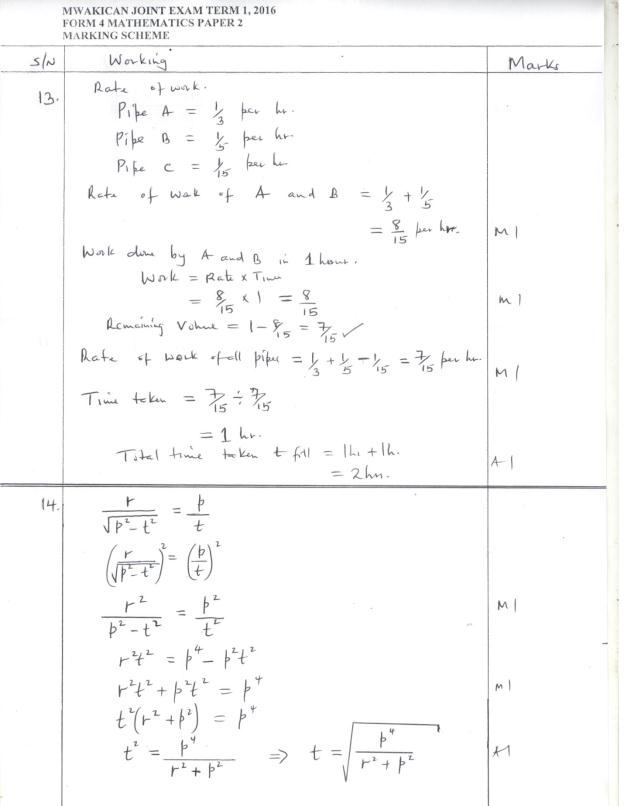 MWAKICAN JOINT EXAM TERM 1, 2016
FORM 4 MATHEMATICS PAPER 2
MARKING SCHEME
S/N Working Marks
13. Rate of work.
Pipe A = 1/3 per hr.
Pipe B = 1/5 per hr
Pipe C = 1/15 per hr
Rate of wok of A and B = 1/3 + 1/5
= 8/15 per hr. M1
Work done by A and B in 1 hour.
Work = Rate x Time
= 8/15 x 1 = 8/15 M1
Remaining Volume = 1 - 8/15 = 7/15 ✓
Rate of work of all pipes = 1/3 + 1/5 - 1/15 = 7/15 per hr. M1
Time taken = 7/15 ÷ 7/15
= 1 hr.
Total time taken t fill = 1hr + 1h. A1
= 2hrs.
14. r/√(p² - t²) = p/t
(r/√(p² - t²))² = (p/t)²
r²/(p² - t²) = p²/t² M1
r²t² = p⁴ - p²t²
r²t² + p²t² = p⁴ M1
t²(r² + p²) = p⁴
t² = p⁴/(r² + p²) ⇒ t = √(p⁴/(r² + p²)) A1